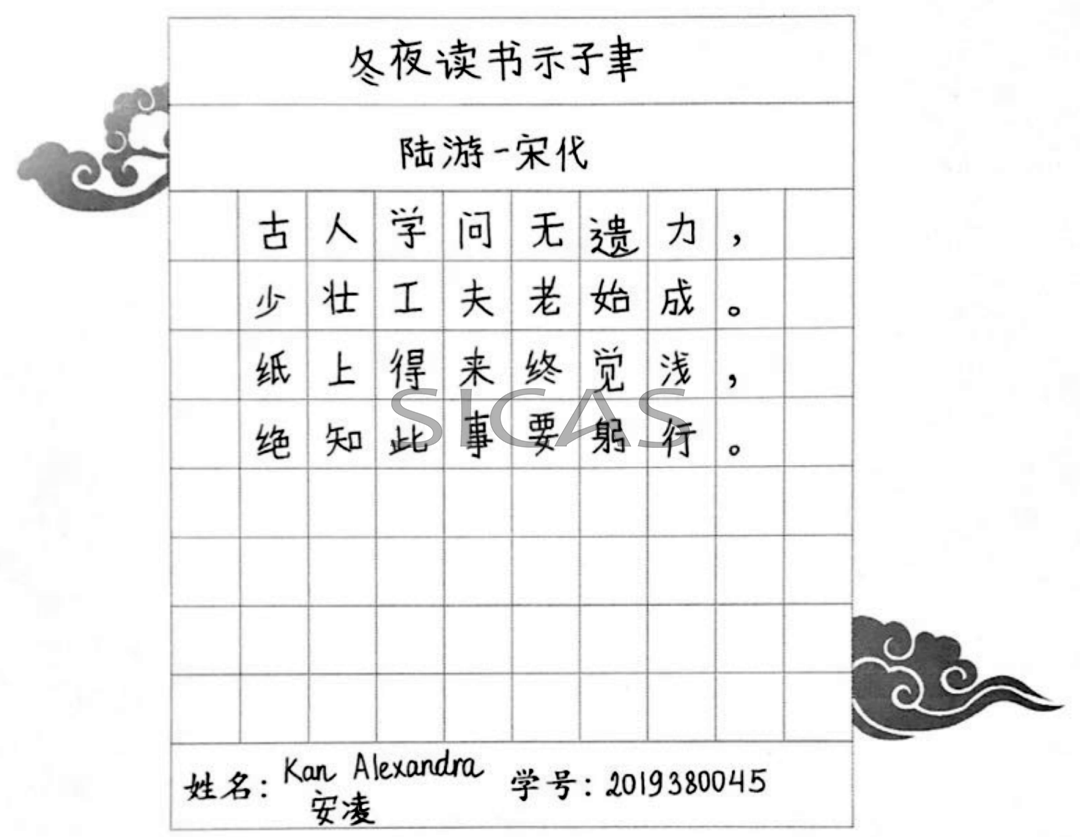 冬夜读书示子聿
陆游-宋代
古人学问无遗力，
少壮工夫老始成。
纸上得来终觉浅，
绝知此事要躬行。
SICAS
姓名：Kan Alexandra 学号：2019380045
安凌